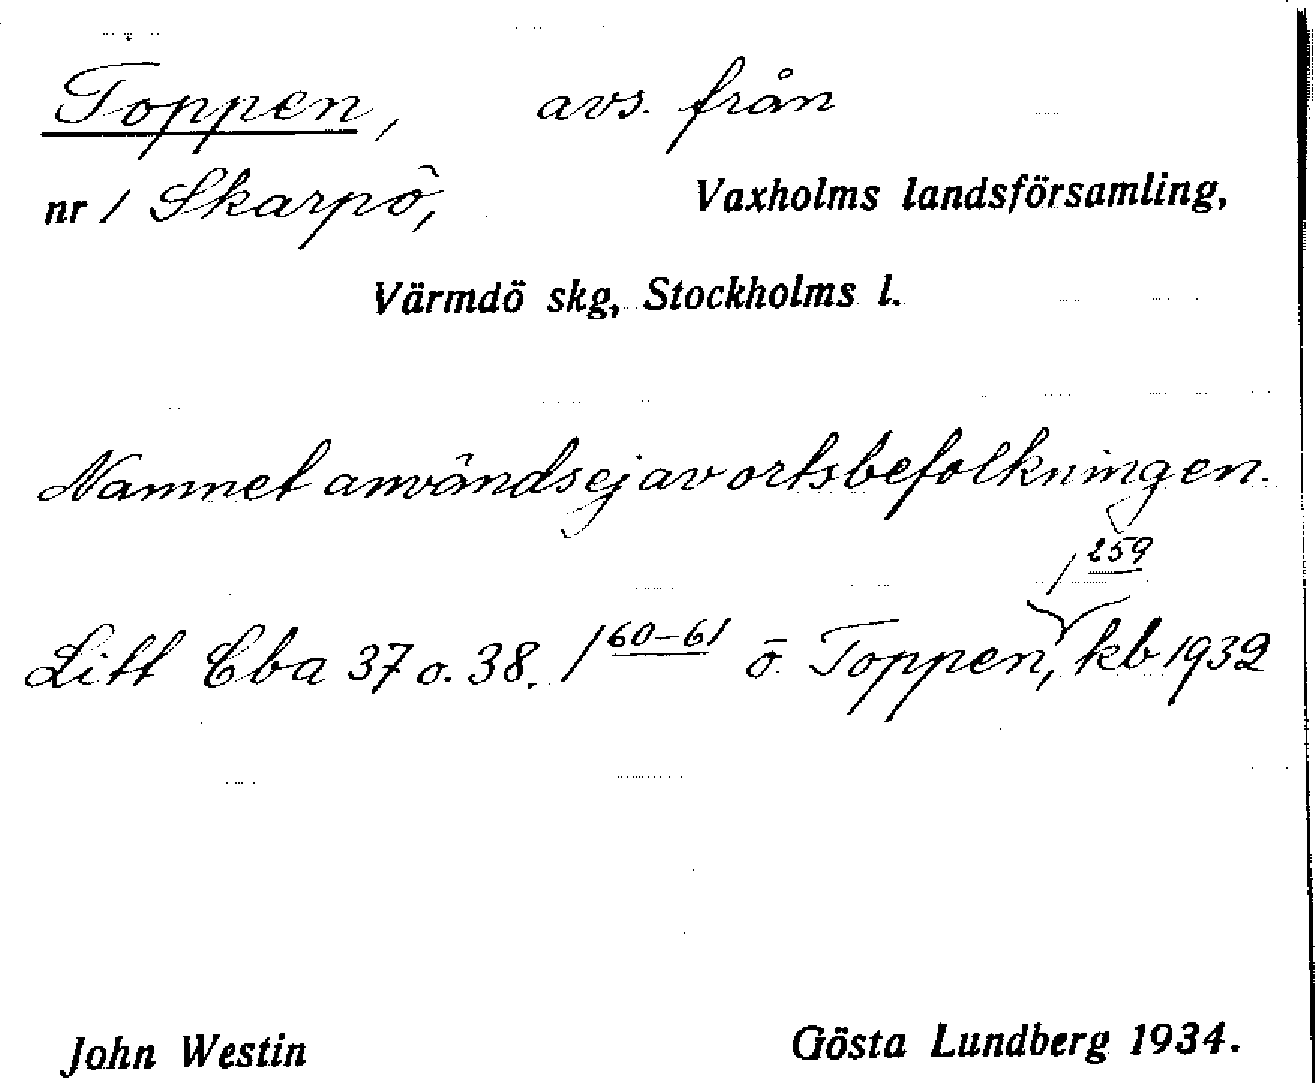 Toppen, avs. från
nr 1 Skarpö, Vaxholms landsförsamling,
Värmdö skg, Stockholms l.
Namnet användsej av ortsbefolkningen.
/ 259
Litt Eba 37 o. 38. / 60-61 ö. Toppen, kb 1932
John Westin Gösta Lundberg 1934.